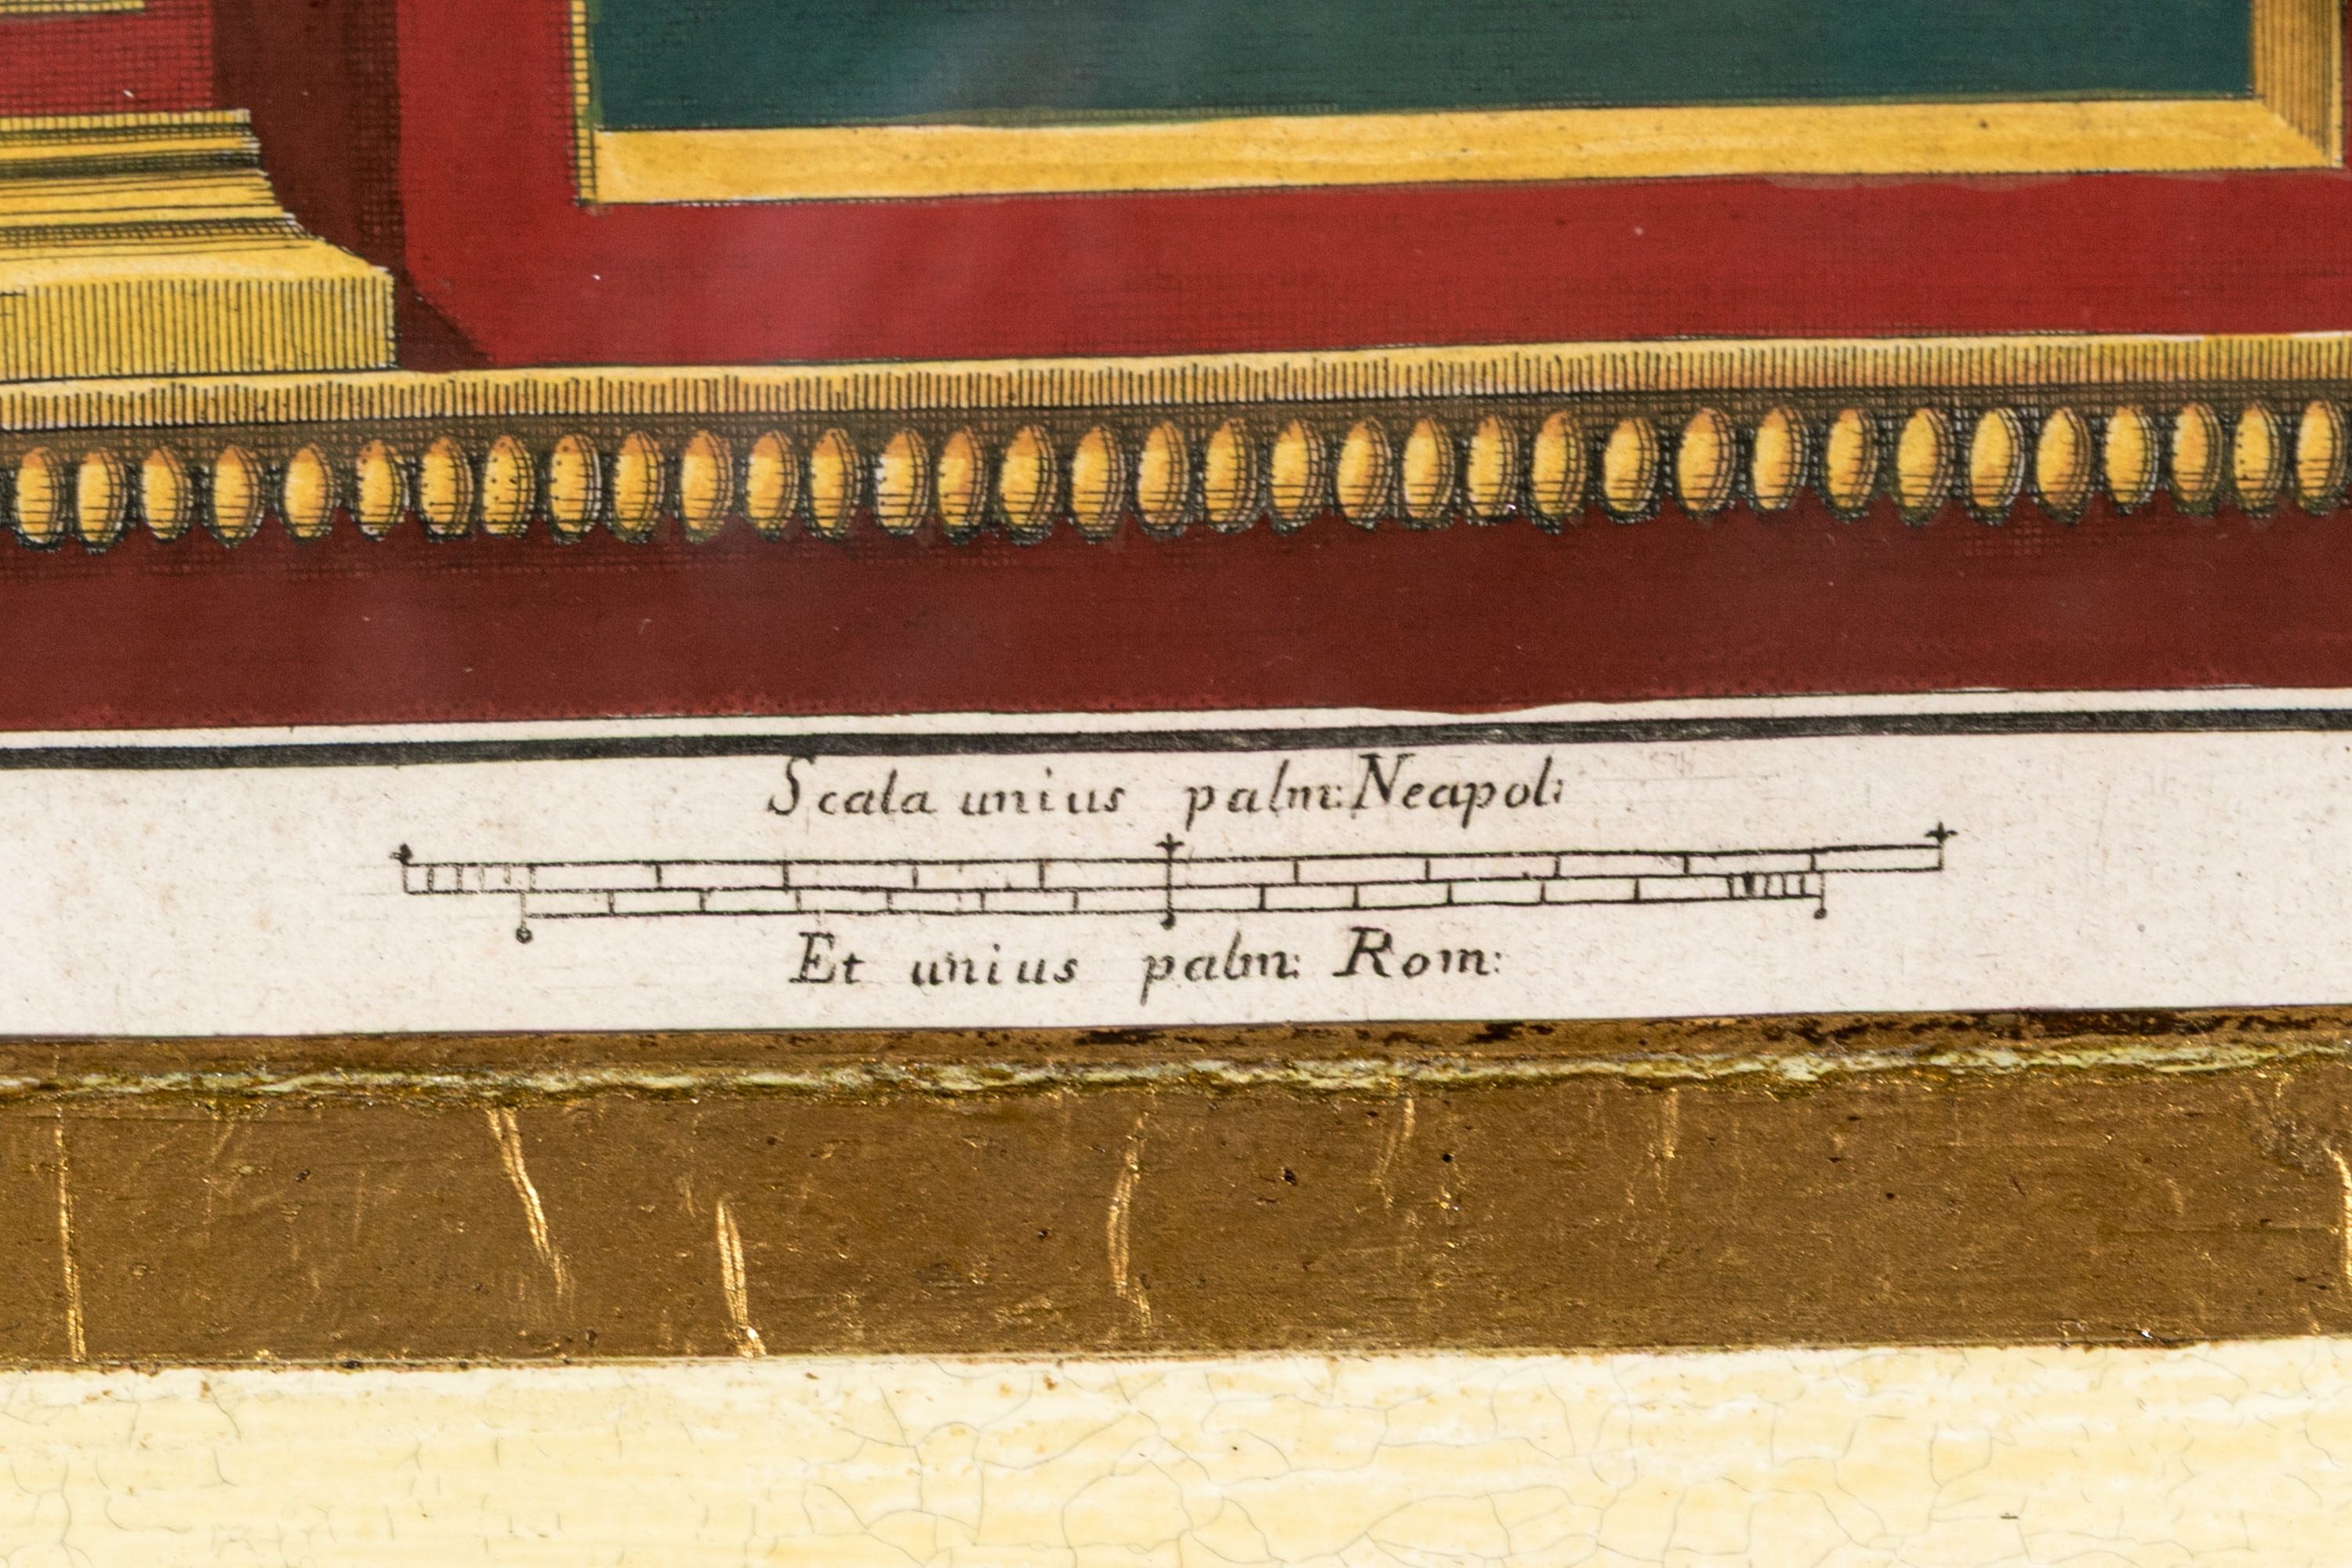 Scala unius palm: Neapol:
Et unius palm: Rom: